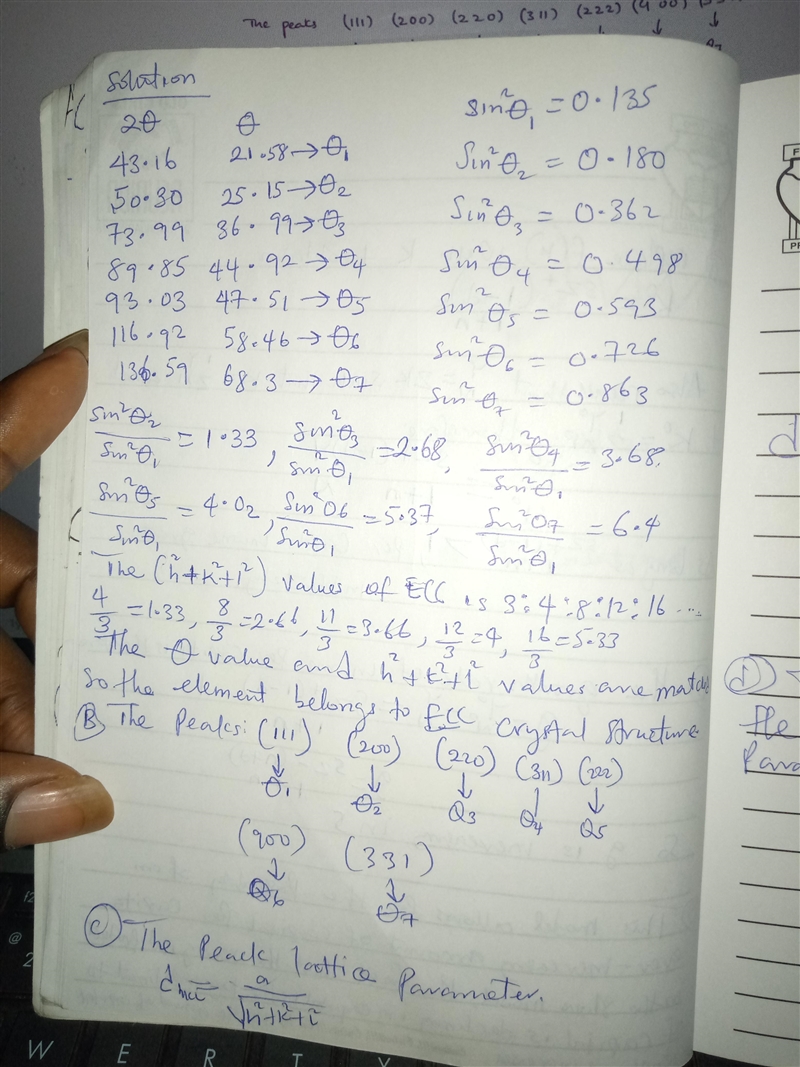 The peaks (111) (200) (220) (311) (222) (400)
Solution
2θ θ
43.16 21.58→θ₁
50.30 25.15→θ₂
73.99 36.99→θ₃
89.85 44.92→θ₄
93.03 47.51→θ₅
116.92 58.46→θ₆
136.59 68.3→θ₇
Sin²θ₁ = 0.135
Sin²θ₂ = 0.180
Sin²θ₃ = 0.362
Sin²θ₄ = 0.498
Sin²θ₅ = 0.593
Sin²θ₆ = 0.726
Sin²θ₇ = 0.863
Sin²θ₂/Sin²θ₁ = 1.33, Sin²θ₃/Sin²θ₁ = 2.68, Sin²θ₄/Sin²θ₁ = 3.68.
Sin²θ₅/Sin²θ₁ = 4.02, Sin²θ6/Sin²θ₁ = 5.37, Sin²θ7/Sin²θ₁ = 6.4
The (h²+k²+l²) values of FCC is 3:4:8:12:16 ....
4/3 = 1.33, 8/3 = 2.66, 11/3 = 3.66, 12/3 = 4, 16/3 = 5.33
The θ value and h²+k²+l² values are
So the element belongs to FCC Crystal Structure.
B The Peaks: (111) (200) (220) (311) (222)
↓ ↓ ↓ ↓ ↓
θ₁ θ₂ θ₃ θ₄ θ₅
(900) (331)
↓ ↓
θ₆ θ₇
C The Peack lattice Parameter.
= a/√h²+k²+l²
d)
the
Para
W E R T Y